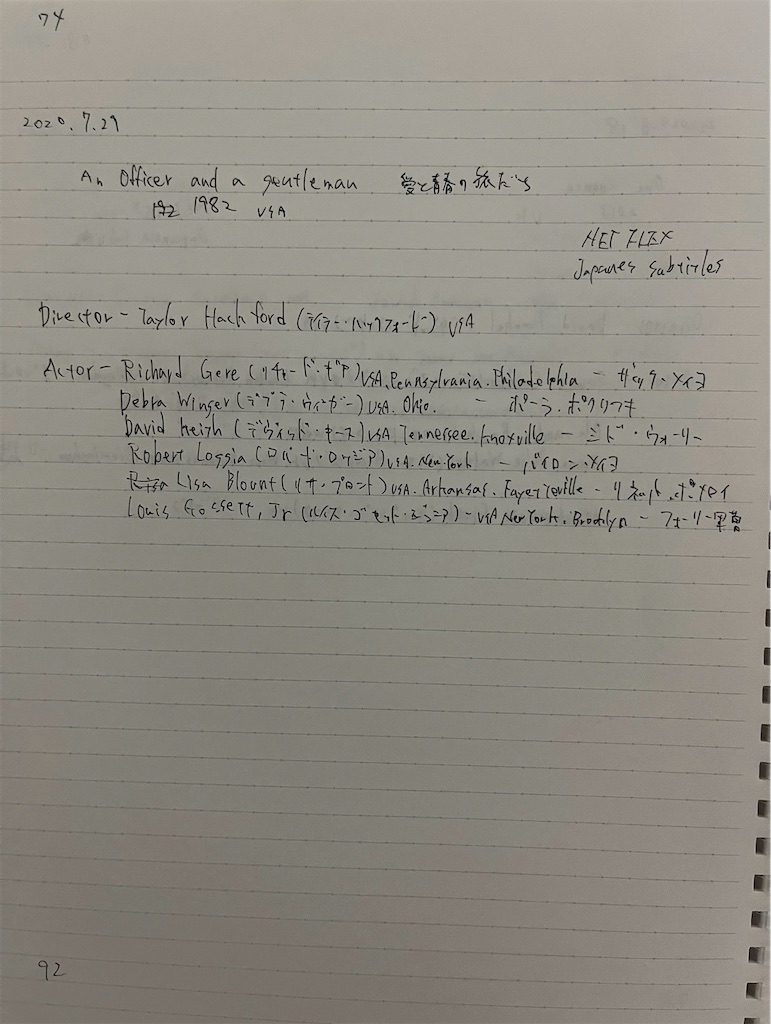 74
2020.7.29
An Officer and a gentleman 愛と青春の旅だち
1982 USA
NETFLEX
Japanes subtitles
Director - Taylor Hackford (テイラー・ハックフォード) USA
Actor - Richard Gere (リチャード・ギア) USA. Pennsylvania. Philadelphia - ザック・メイヨ
Debra Winger (デブラ・ウィンガー) USA. Ohio. - ポーラ・ポクリフキ
David Keith (デヴィッド・キース) USA. Tennersee. Knoxville - シド・ウォーリー
Robert Loggia (ロバート・ロッジア) USA. New York - バイロン・メイヨ
Lisa Blount (リサ・ブロント) USA. Arkansas. Fayetteville - リネット・ポメロイ
Louis Gossett, Jr (ルイス・ゴセット・ジュニア) - USA New York. Brooklyn - フォーリー軍曹
92